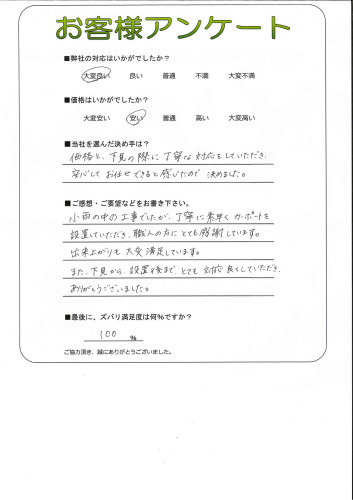 お客様アンケート
■弊社の対応はいかがでしたか？
大変良い 良い 普通 不満 大変不満
■価格はいかがでしたか？
大変安い 安い 普通 高い 大変高い
■当社を選んだ決め手は？
価格と、下見の際に丁寧な対応をしていただき、
安心してお任せできると感じたので決めました。
■ご感想・ご要望などをお書き下さい。
小雨の中の工事でしたが、丁寧に素早くカーポートを
設置していただき、職人の方にとても感謝しています。
出来上がりも大変満足しています。
また、下見から、設置後まで、とても対応良くしていただき、
ありがとうございました。
■最後に、ズバリ満足度は何％ですか？
100 ％
ご協力頂き、誠にありがとうございました。